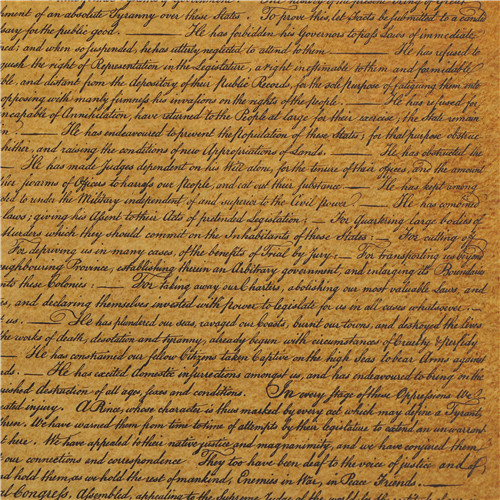 ment of an absolute Tyranny over these States. To prove this, let Facts be submitted to a candid
sary for the public good. — He has forbidden his Governors to pass Laws of immediate
red; and when so suspended, he has utterly neglected to attend to them — He has refused to
quish the right of Representation in the Legislature, a right inestimable to them and formidable
ble, and distant from the depository of their Public Records, for the sole purpose of fatiguing them into
opposing with manly firmness his invasions on the rights of the people. — He has refused for
incapable of Annihilation, have returned to the People at large for their exercise; the State remain
n. — He has endeavoured to prevent the population of these States; for that purpose obstruc
hither, and raising the conditions of new Appropriations of Lands. — He has obstructed the
— He has made Judges dependent on his Will alone, for the tenure of their offices, and the amount
her swarms of Officers to harrass our people, and eat out their substance. — He has kept among
ed to render the Military independent of and superior to the Civil power. — He has combined
laws; giving his Assent to their Acts of pretended Legislation: — For Quartering large bodies of
Murders which they should commit on the Inhabitants of these States: — For cutting off
For depriving us in many cases, of the benefits of Trial by jury: — For transporting us beyond
eighbouring Province, establishing therein an Arbitrary government, and enlarging its Boundaries
into these Colonies: — For taking away our Charters, abolishing our most valuable Laws, and
es, and declaring themselves invested with power to legislate for us in all cases whatsoever. —
t us. — He has plundered our seas, ravaged our Coasts, burnt our towns, and destroyed the lives
the works of death, desolation and tyranny, already begun with circumstances of Cruelty & perfidy
— He has constrained our fellow Citizens taken Captive on the high Seas to bear Arms against
eds. — He has excited domestic insurrections amongst us, and has endeavoured to bring on the
uished destruction of all ages, sexes and conditions. In every stage of these Oppressions We
eated injury. A Prince, whose character is thus marked by every act which may define a Tyrant,
thren. We have warned them from time to time of attempts by their legislature to extend an unwarran
t here. We have appealed to their native justice and magnanimity, and we have conjured them
our connections and correspondence. They too have been deaf to the voice of justice and of
d hold them, as we hold the rest of mankind, Enemies in War, in Peace Friends. —
al Congress, Assembled, appealing to the Supreme Judge of the world for the